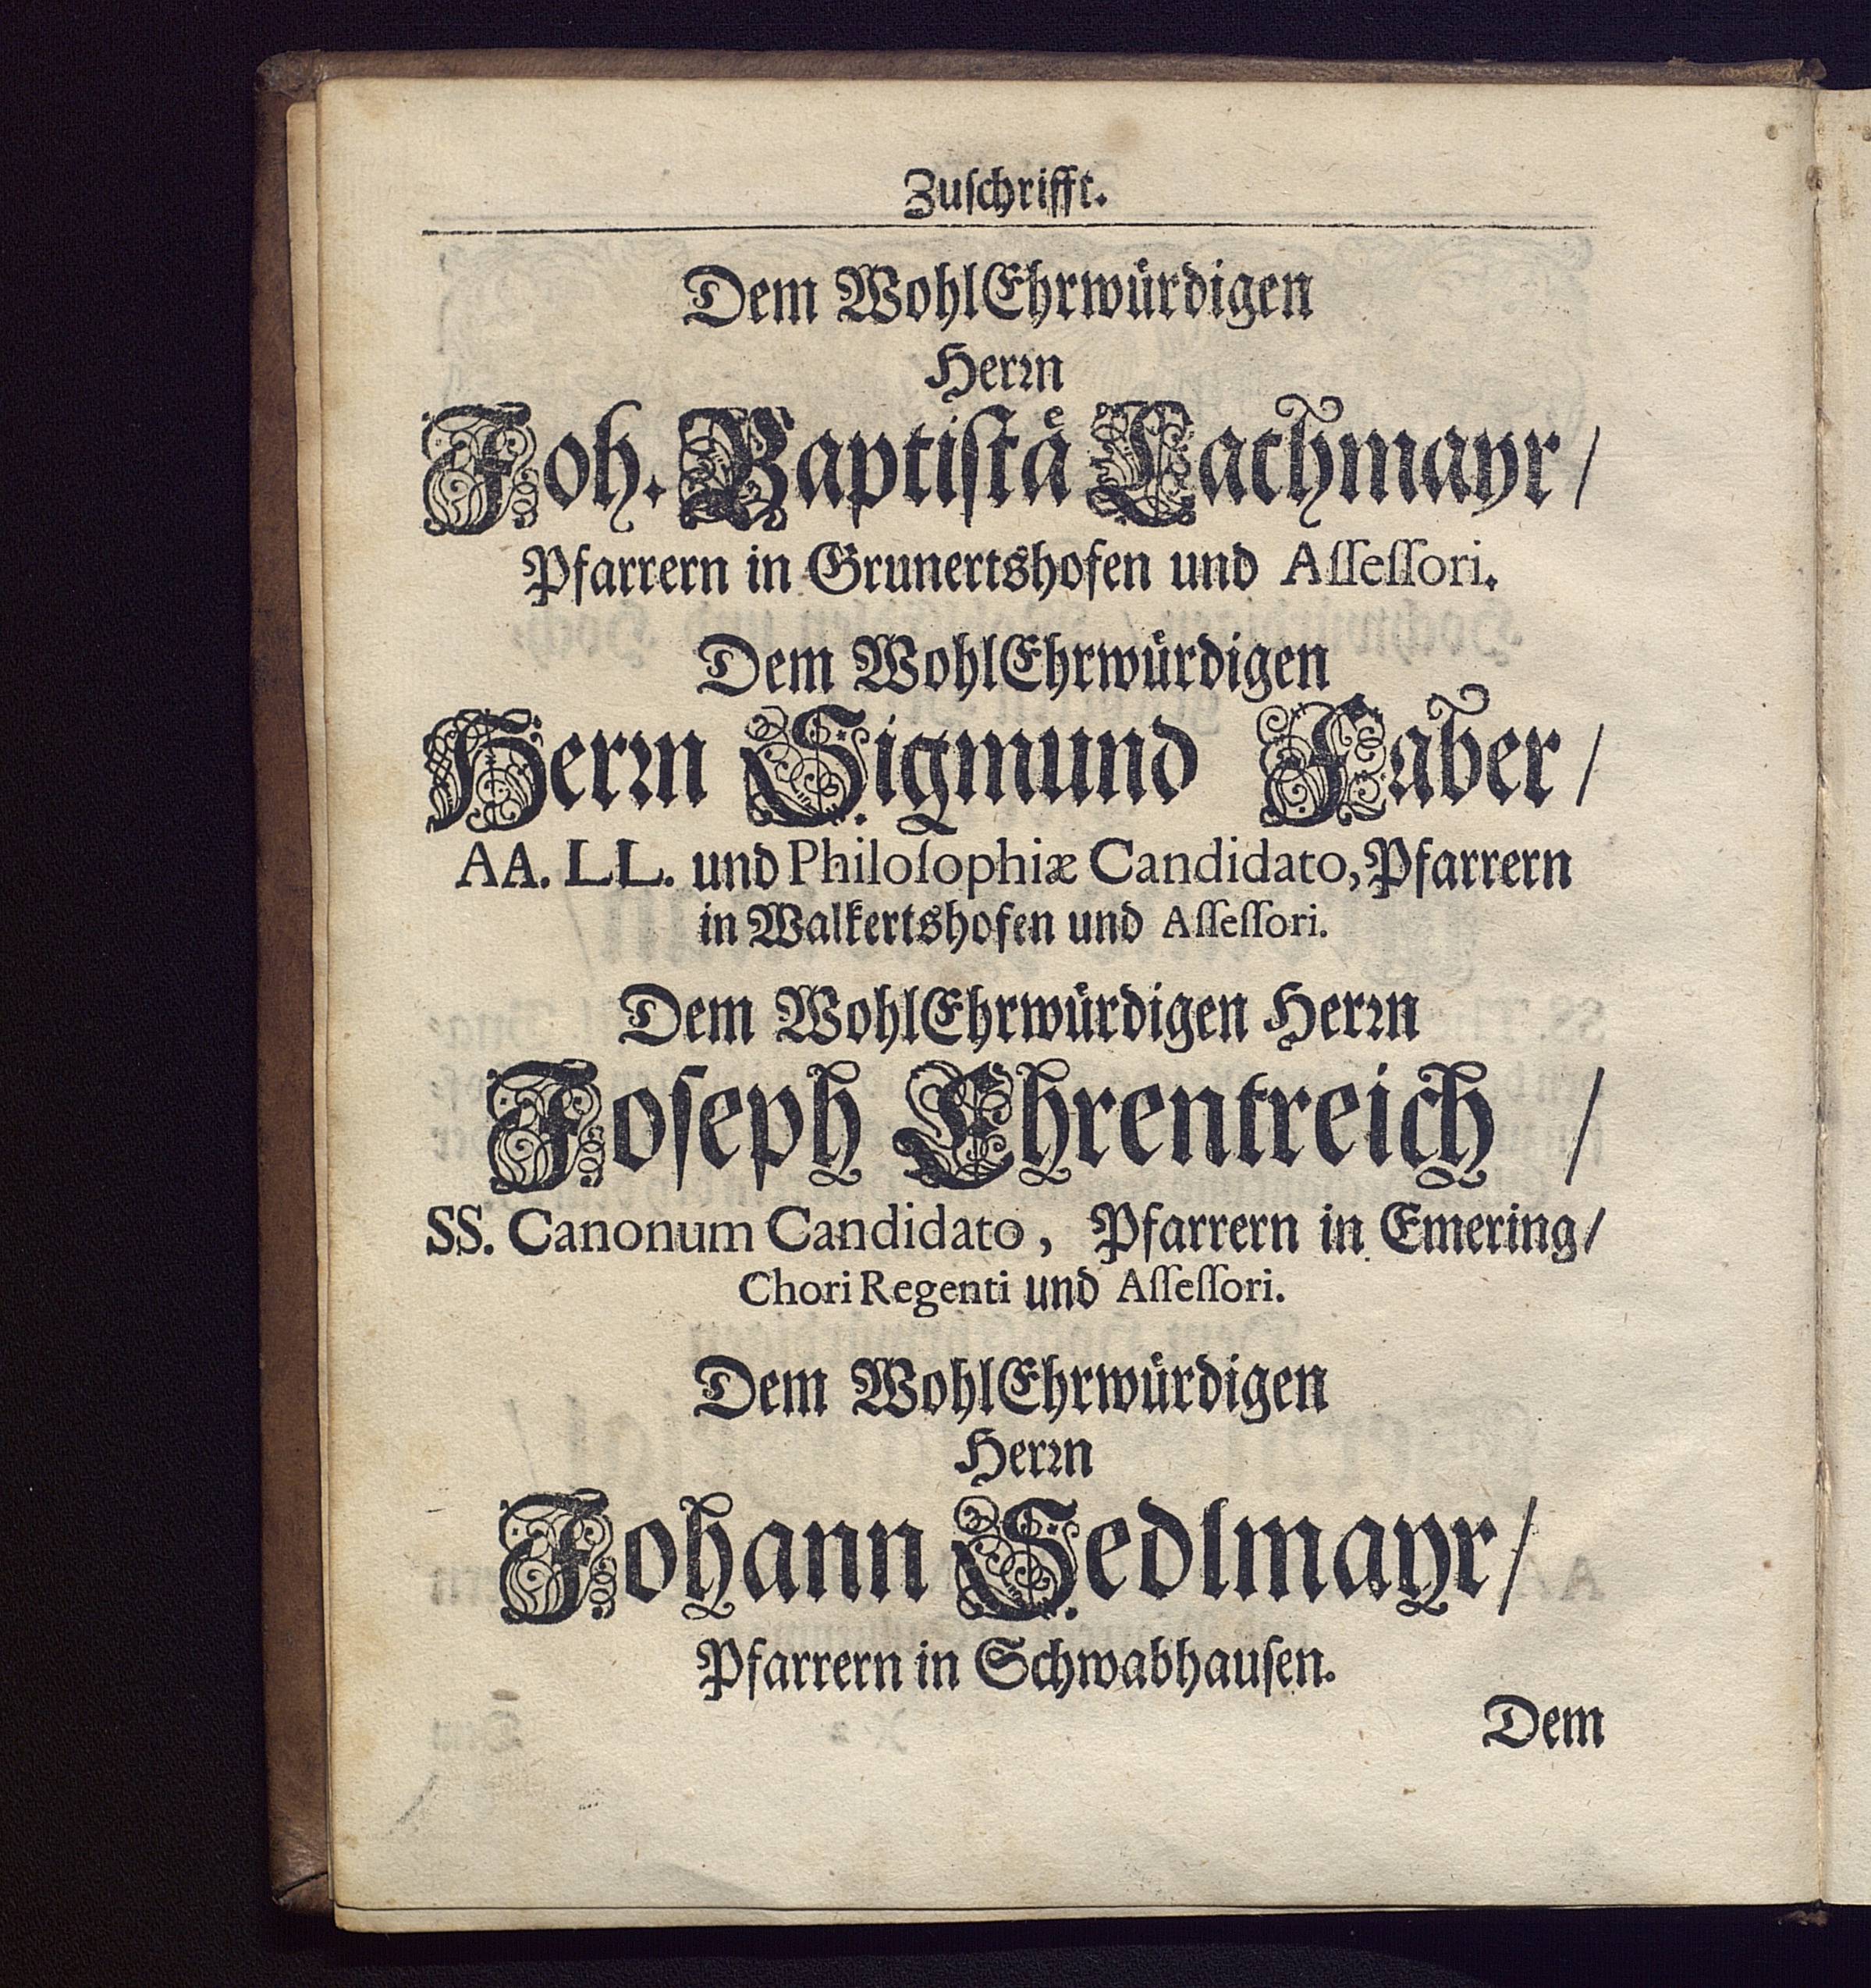 Zuſchrifft.
Dem WohlEhrwuͤrdigen
Herꝛn
Joh. Baptiſtaͤ Lachmayr/
Pfarrern in Grunertshofen und Aſſeſſori.
Dem WohlEhrwuͤrdigen
Herꝛn Sigmund Faber/
AA. LL. und Philoſophiæ Candidato, Pfarrern
in Walkertshofen und Aſſeſſori.
Dem WohlEhrwuͤrdigen Herꝛn
Joſeph Ehrentreich /
SS. Canonum Candidato, Pfarrern in Emering/
Chori Regenti und Aſſeſſori.
Dem WohlEhrwuͤrdigen
Herꝛn
Johann Sedlmayr/
Pfarrern in Schwabhauſen.
Dem